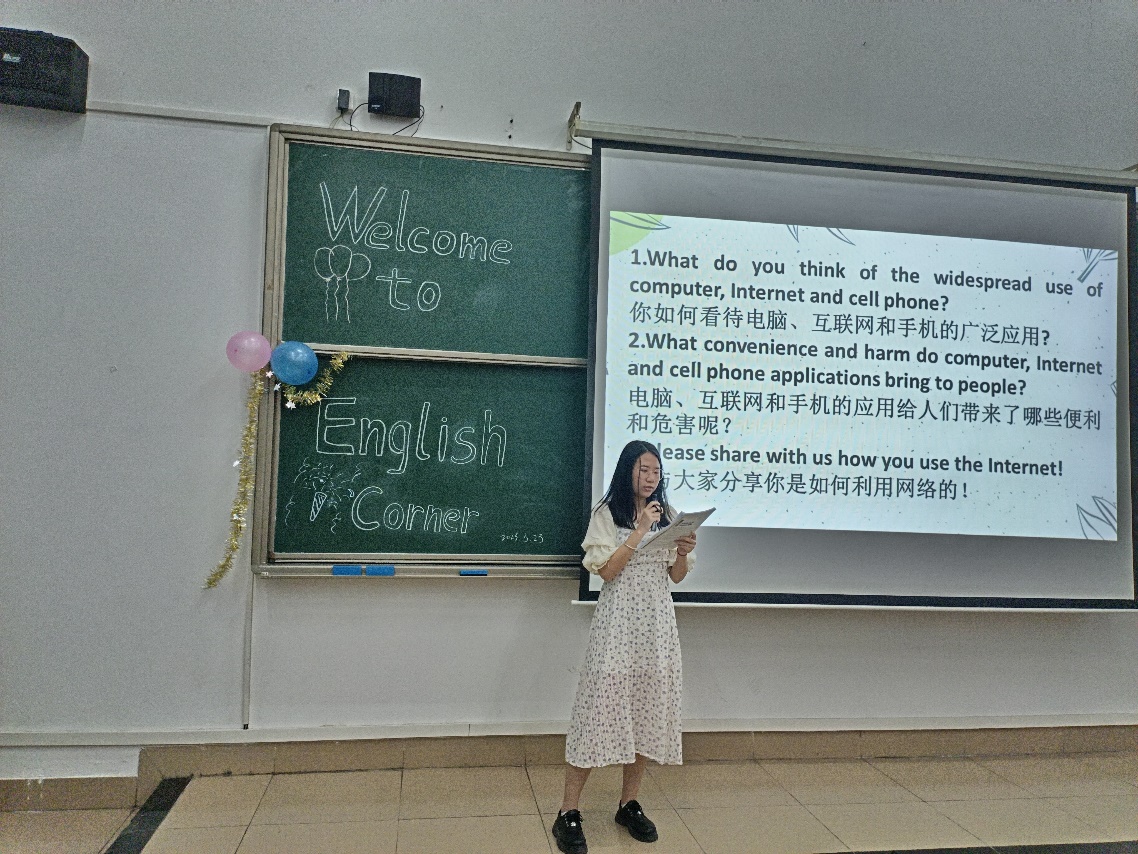 Welcome
to
English
Corner
1.What do you think of the widespread use of
computer, Internet and cell phone?
你如何看待电脑、互联网和手机的广泛应用?
2.What convenience and harm do computer, Internet
and cell phone applications bring to people?
电脑、互联网和手机的应用给人们带来了哪些便利
和危害呢?
lease share with us how you use the Internet!
大家分享你是如何利用网络的!